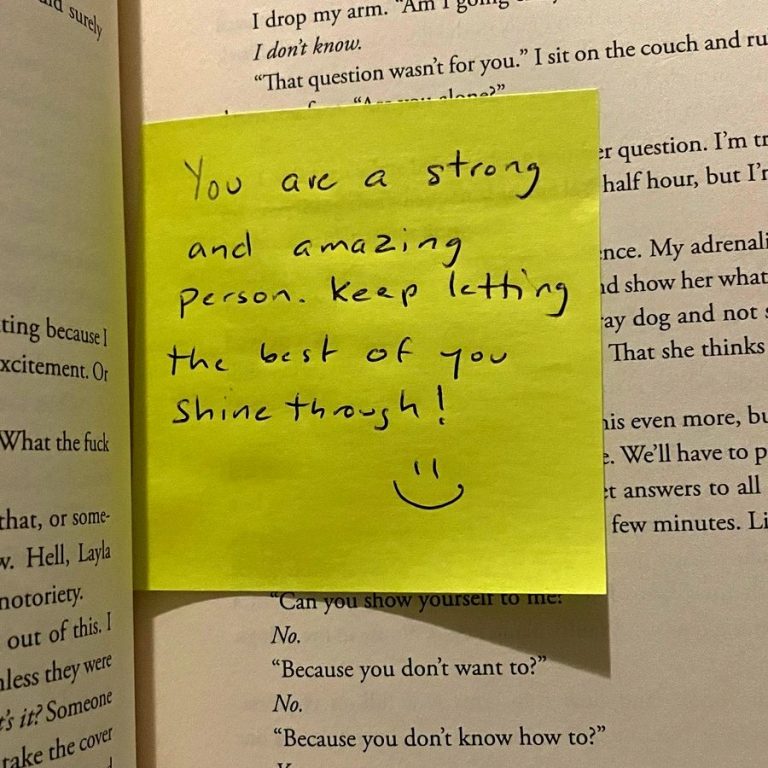 surely
ting because I
xcitement. Or
What the fuck
that, or some-
w. Hell, Layla
notoriety.
out of this. I
nless they were
t's it? Someone
take the cover
I drop my arm. "Am I going
I don't know.
"That question wasn't for you." I sit on the couch and ru
alone?"
You are a strong
and amazing
person. Keep letting
the best of you
shine through!
er question. I'm tr
half hour, but I'r
nce. My adrenali
nd show her what
ray dog and not s
That she thinks
his even more, bu
e. We'll have to p
et answers to all
few minutes. Li
"Can you show yourself to me?
No.
"Because you don't want to?"
No.
"Because you don't know how to?"